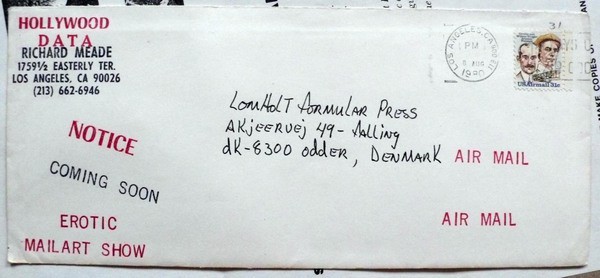 HOLLYWOOD
DATA
RICHARD MEADE
1759½ EASTERLY TER.
LOS ANGELES, CA 90026
(213) 662-6946
LOS ANGELES, CA
PM
1980
31
USAirmail
NOTICE
COMING SOON
EROTIC
MAILART SHOW
LomHolT formular Press
AKjeervej 49 - falling
dK-8300 odder, DENMARK
AIR MAIL
AIR MAIL
MAKE COPIES OF